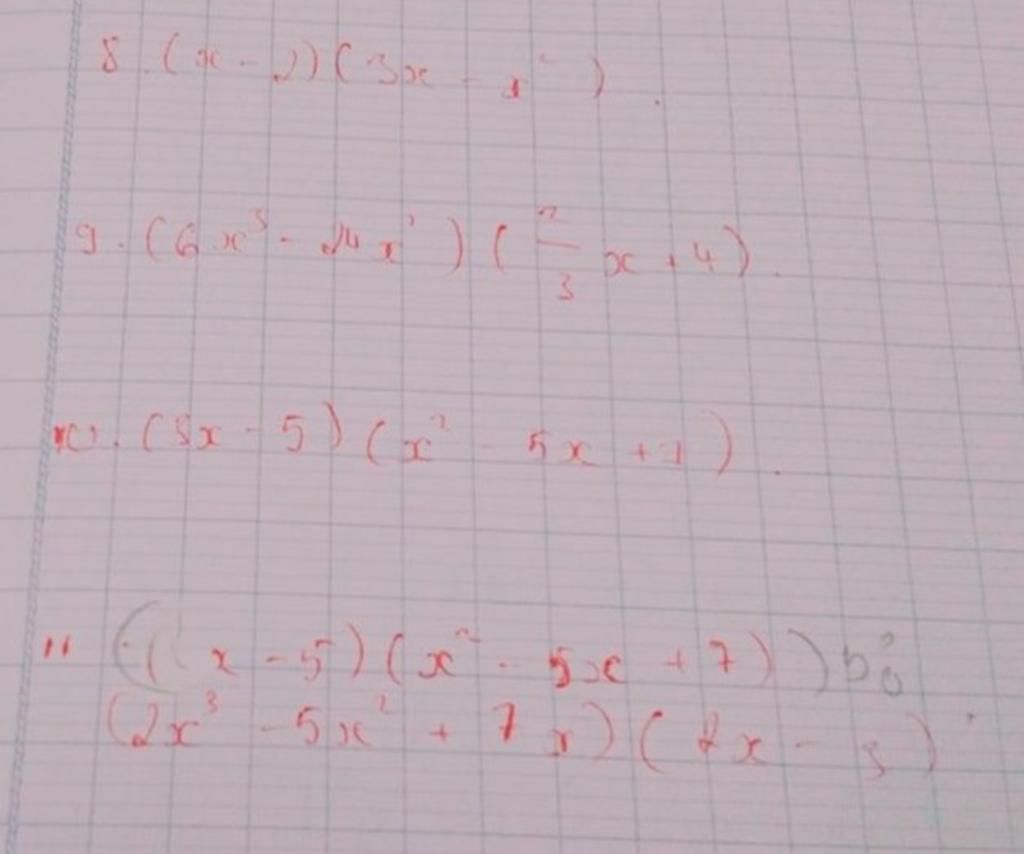 8. (x - 2)(3x - 1² )
9. (6x³ - 24x² ) ( 2/3 x + 4)
10. (3x - 5) (x² - 5x + 7)
11 (( x - 5)(x² - 5x + 7)) bỏ
(2x³ - 5x² + 7x) (2x - 3)